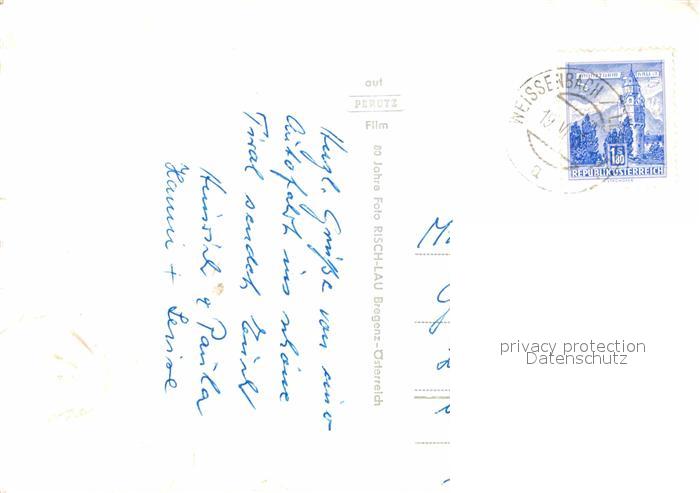 Hrzl. Grüße von einer
Autofahrt ins schöne
Tirol sendet Euch
Heinrich & Paula
Hanni + Senise
auf
PERUTZ
Film
80 Jahre Foto RISCH-LAU Bregenz-Österreich
WEISSENBACH
19. VI.
a
1.80
REPUBLIK ÖSTERREICH
privacy protection
Datenschutz